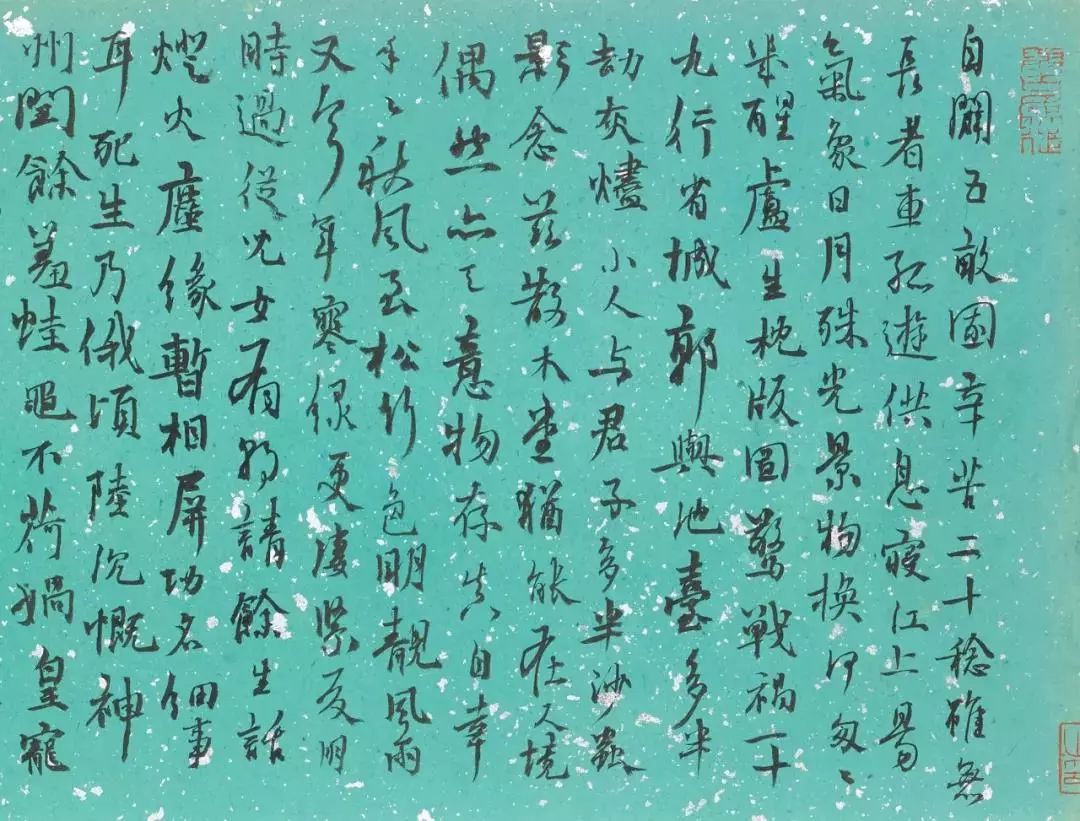 自闢五畝園辛苦二十稔雖無
長者車孤遊供息寢江上易
氣象日月殊光景物換何匆〻
半醒盧生枕版圖驚戰禍一十
九行省城郭與池臺多半
劫灰燼小人与君子多半沙蟲
影念茲散木堂猶能在人境
偶然亦天意物存真自幸
年〻秋風至松竹色明靚風雨
又今年寒緑更凄緊友朋
時過從兒女有請餘生話
燈火塵緣暫相屏功名細事
耳死生乃俄頃陸沉慨神
州閏餘羞蛙黽不荷媧皇寵